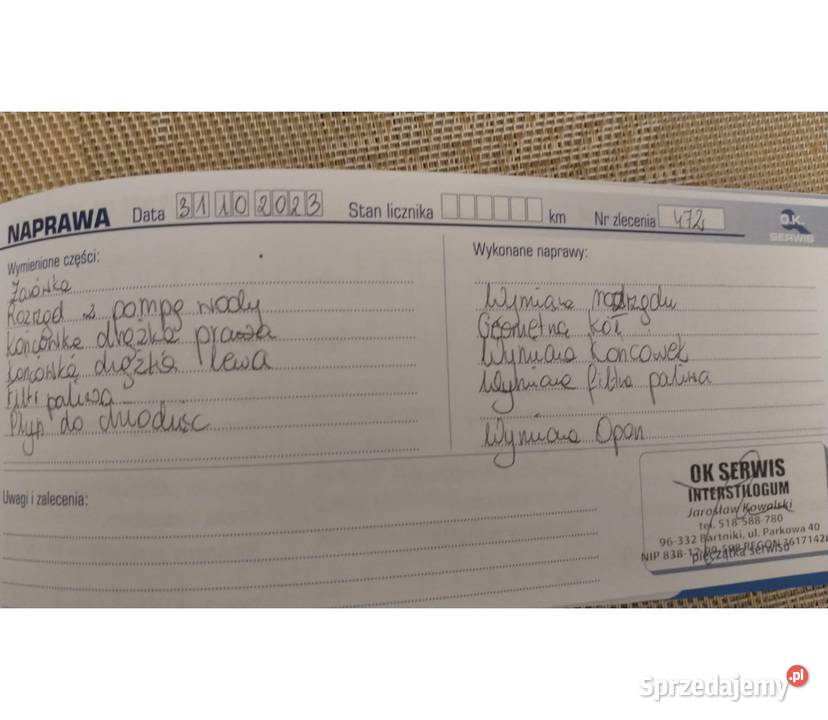 NAPRAWA Data 31 10 2023 Stan licznika km Nr zlecenia 472
O.K. SERWIS
Wymienione części:
Żarówka
Rozrząd z pompę wody
Końcówka drążka prawa
Końcówka drążka lewa
Filtr paliwa
Płyp do chłodnic
Wykonane naprawy:
Wymiana rozrządu
Geometria kół
Wymiana Koncowek
Wymiana filtra paliwa
Wymiana Opon
Uwagi i zalecenia:
OK SERWIS
INTERSTILOGUM
Jarosław Kowalski
tel. 518-588-780
96-332 Bartniki, ul. Parkowa 40
NIP 838-12 REGON 3617142
pieczątka serwisu
Sprzedajemy.pl